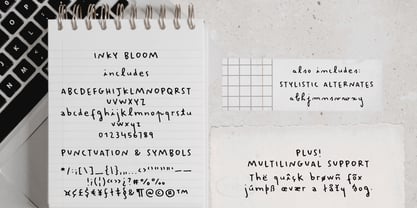 INKY BLOOM
includes
ABCDEFGHIJKLMNOPQRST
UVWXYZ
abcdefghijklmnopqrstu
vwxyz
0123456789
PUNCTUATION & SYMBOLS
also includes:
STYLISTIC ALTERNATES
PLUS!
MULTILINGUAL SUPPORT
Thë quíçk brøwñ fõx
júmpß œvær a